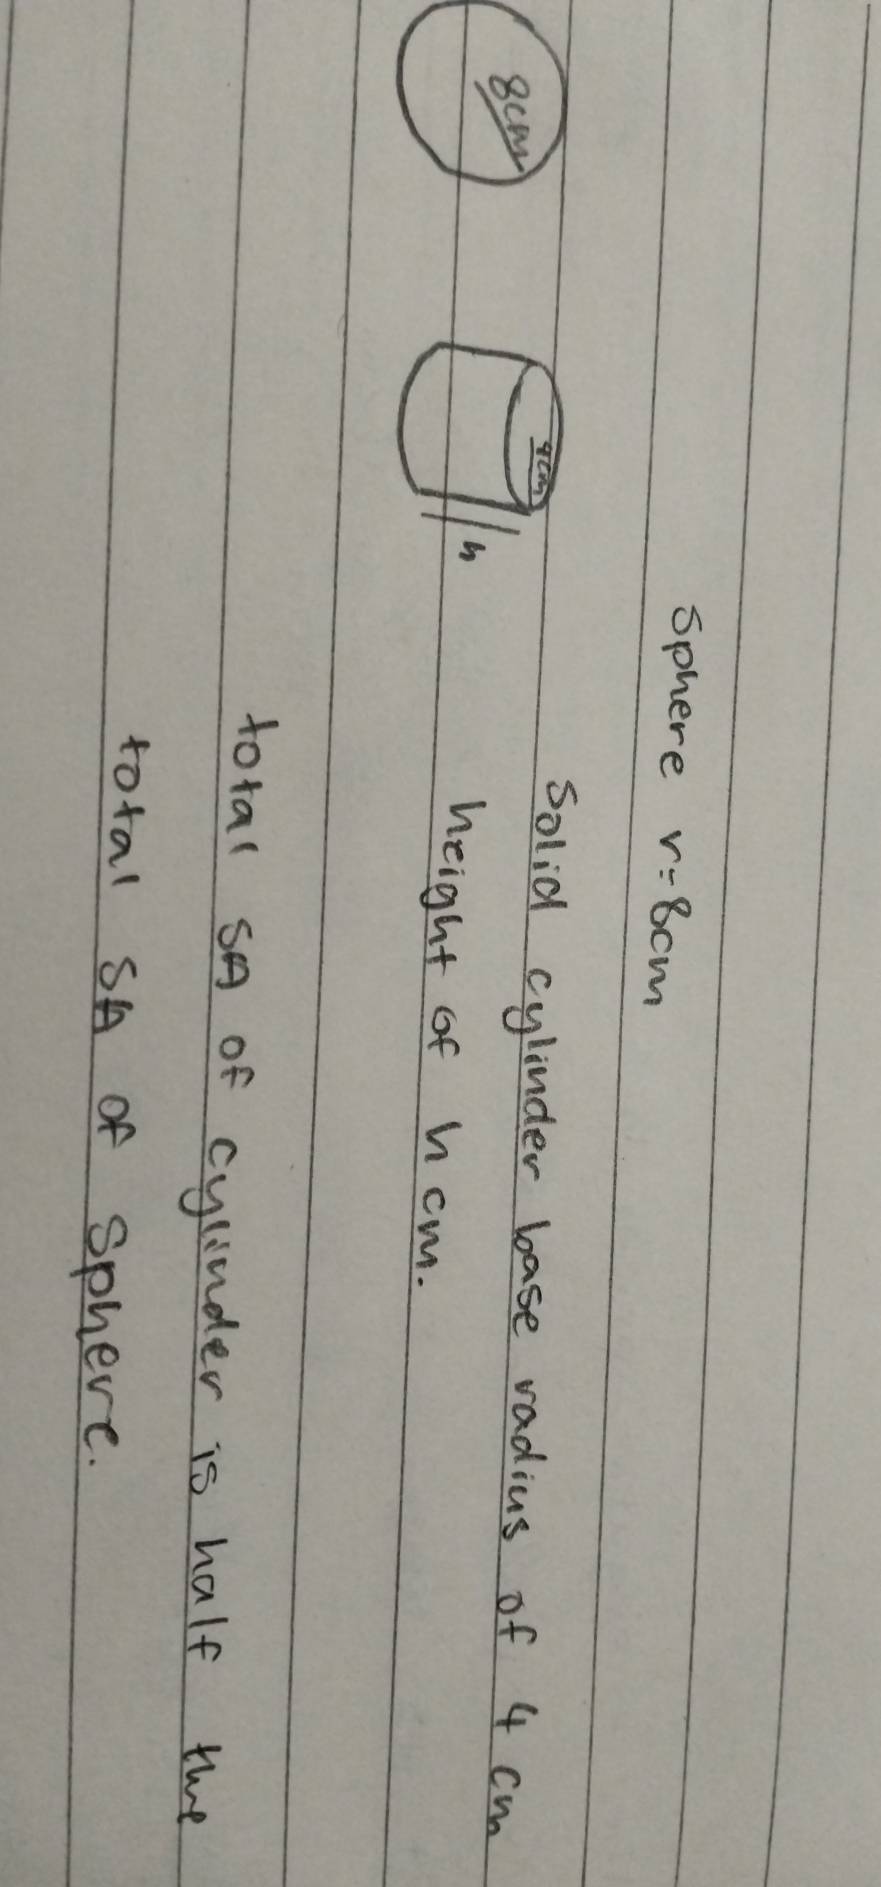 Sphere r=8cm
8cm
Solid cylinder base radius of 4 cm
4cm
height of h cm.
h
total SA of cylinder is half the
total SA of Sphere.